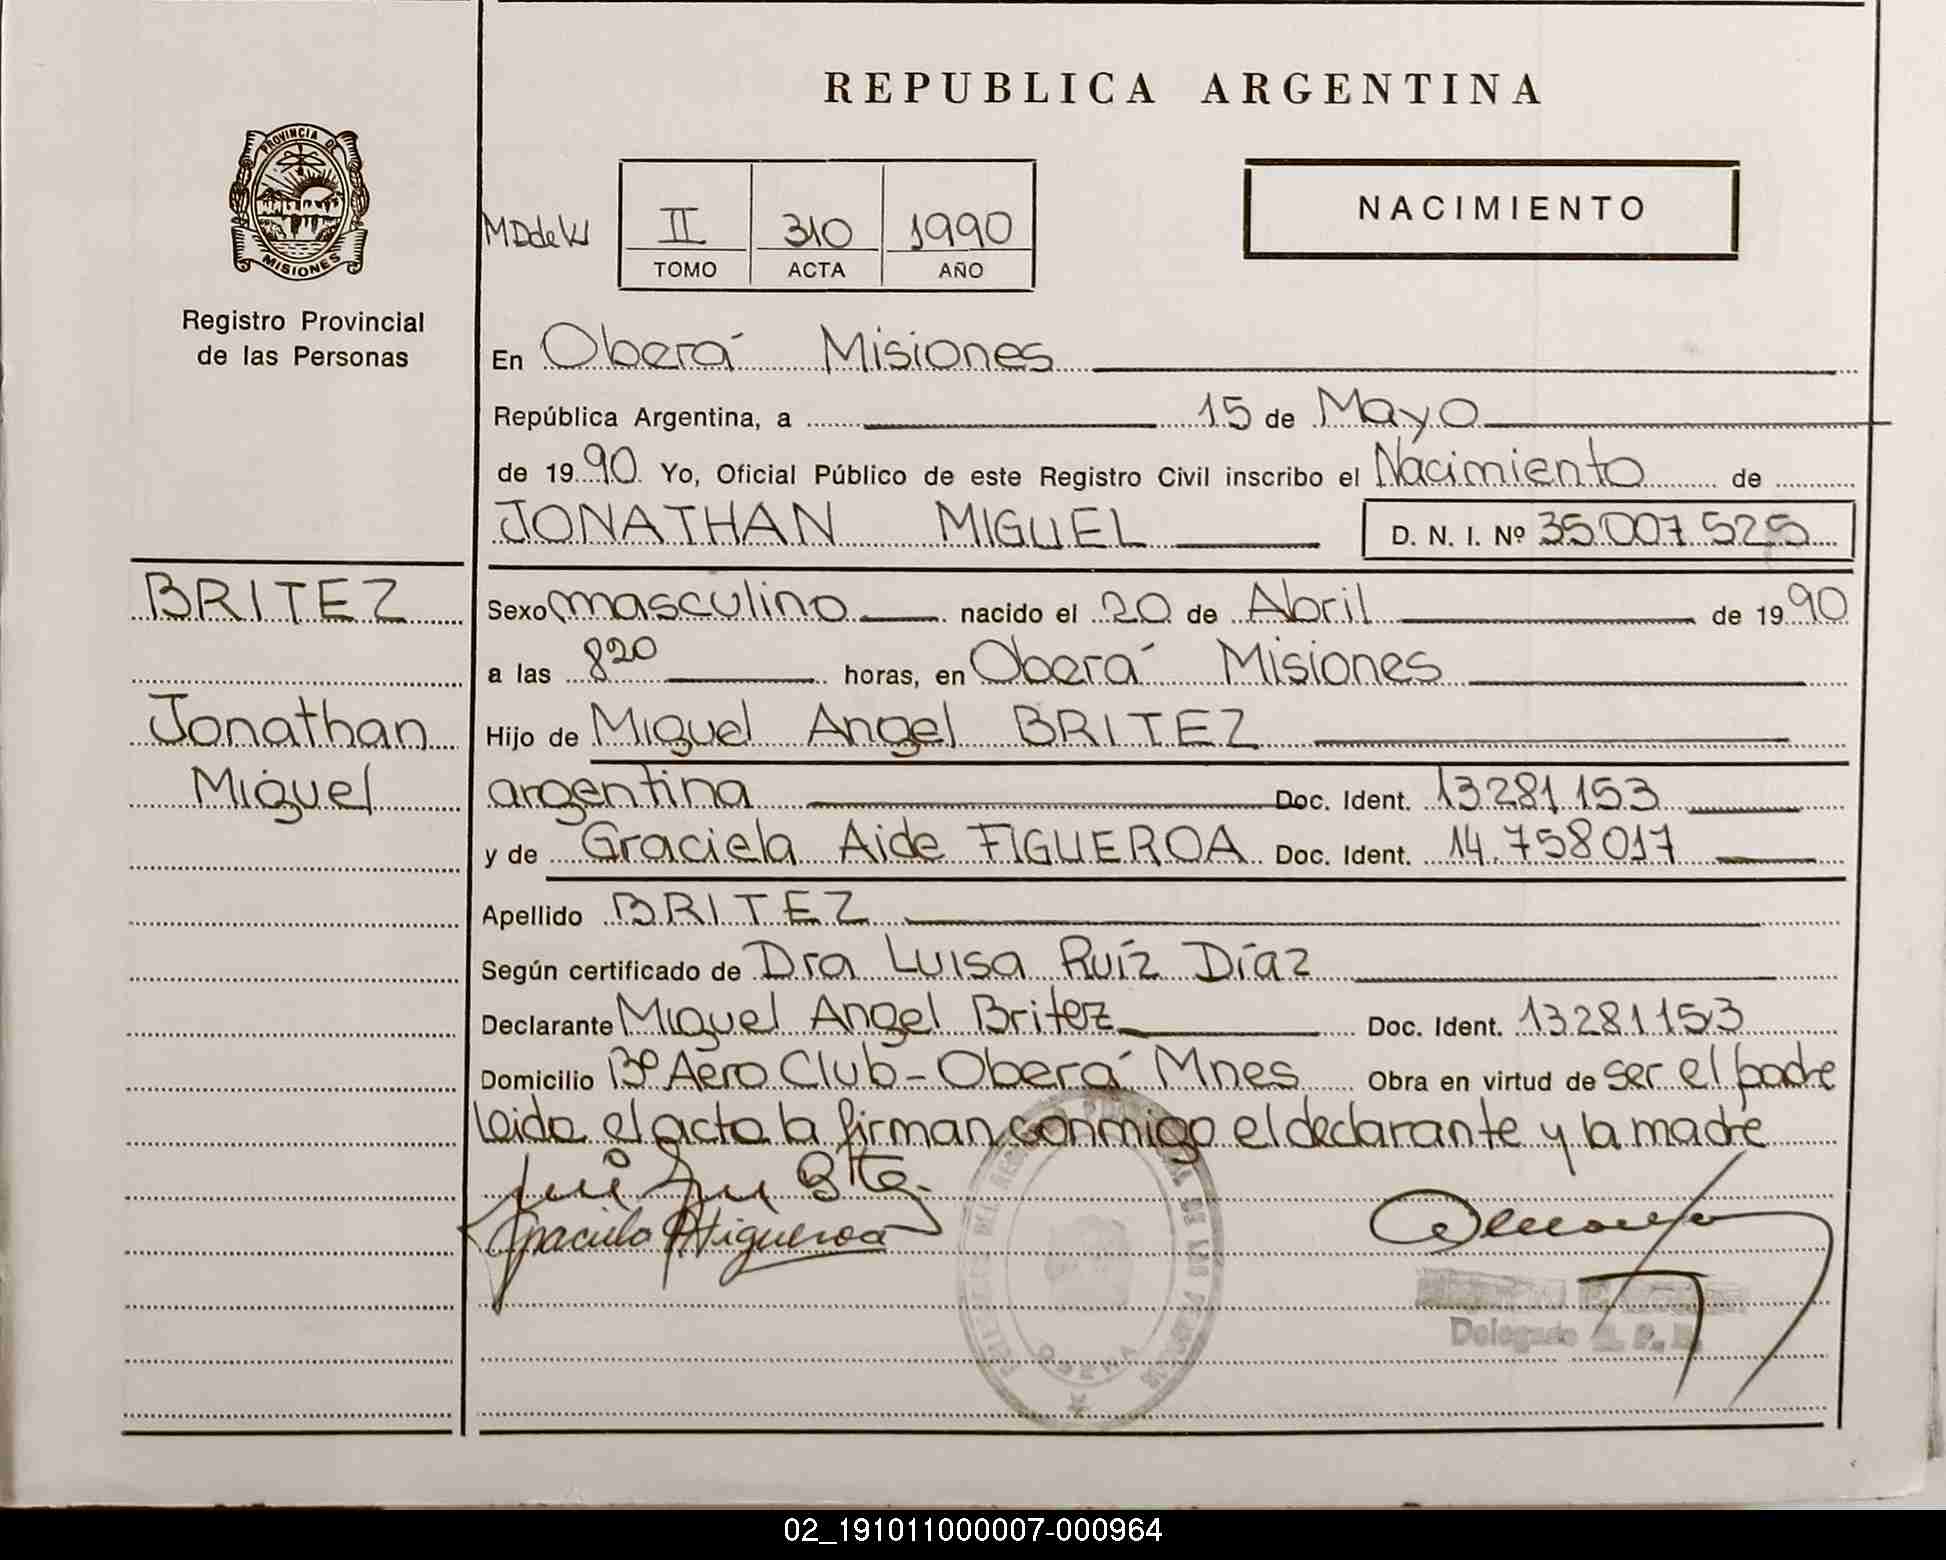 REPUBLICA ARGENTINA
PROVINCIA DE
MISIONES
Registro Provincial
de las Personas
MDdeW
II 310 1990
TOMO ACTA AÑO
NACIMIENTO
En Oberá Misiones
República Argentina, a 15 de Mayo
de 1990 Yo, Oficial Público de este Registro Civil inscribo el Nacimiento de
JONATHAN MIGUEL D. N. I. Nº 35.007.525
BRITEZ
Jonathan
Miguel
Sexo masculino nacido el 20 de Abril de 1990
a las 8 20 horas, en Oberá Misiones
Hijo de Miguel Angel BRITEZ
argentina Doc. Ident. 13281153
y de Graciela Aide FIGUEROA Doc. Ident. 14.758017
Apellido BRITEZ
Según certificado de Dra Luisa Ruíz Díaz
Declarante Miguel Angel Britez Doc. Ident. 13281153
Domicilio Bº Aero Club - Oberá Mnes Obra en virtud de ser el padre
leida el acta la firman conmigo el declarante y la madre
Graciela A Figueroa
OBERA
Delegado R. P. P.
02_191011000007-000964